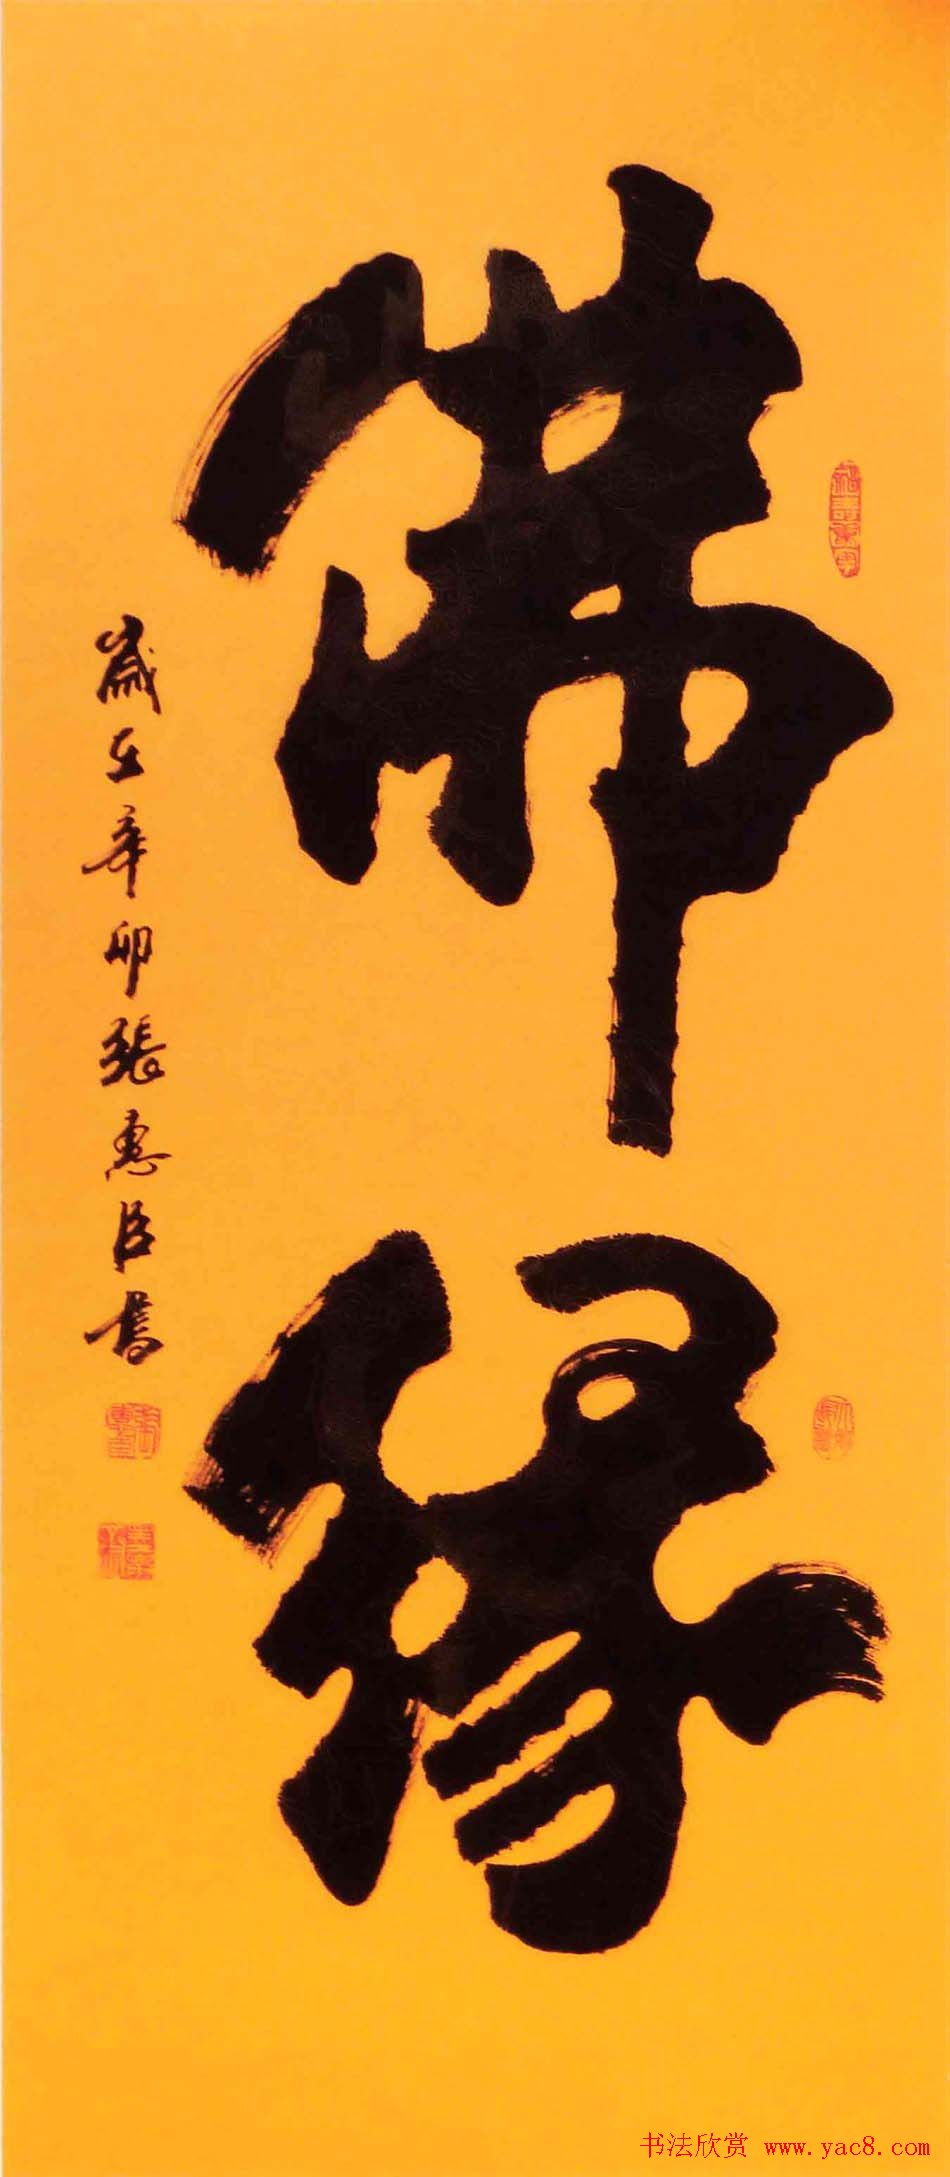 佛緣
歲在辛卯張惠臣書
书法欣赏 www.yac8.com